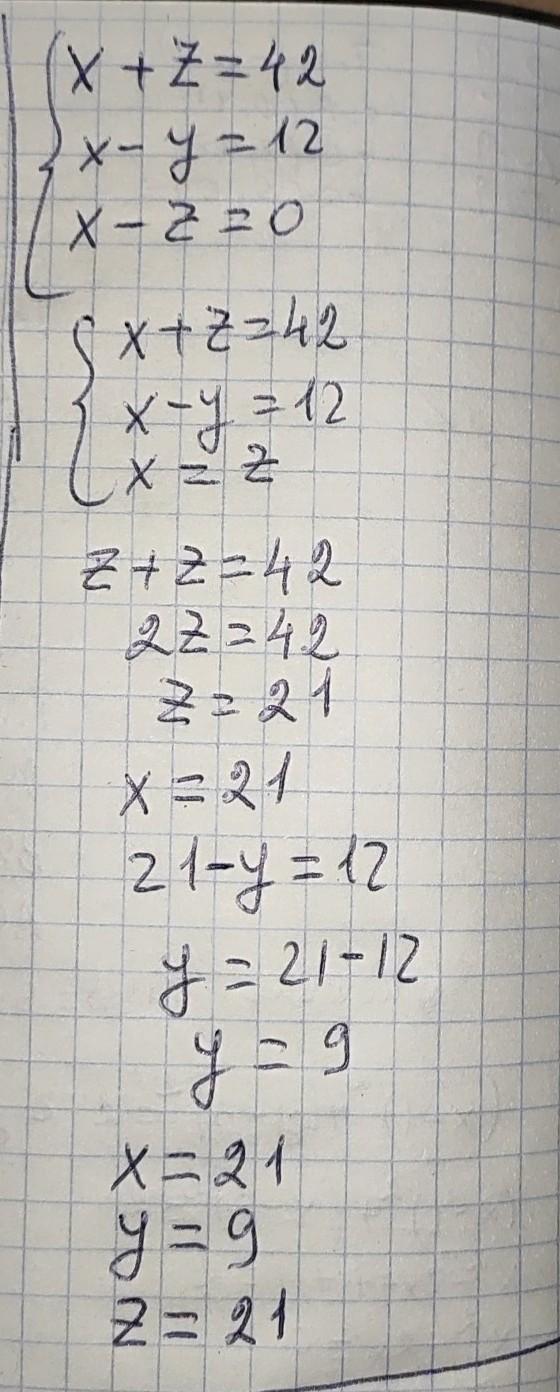 x + z = 42
x - y = 12
x - z = 0
x + z = 42
x - y = 12
x = z
z + z = 42
2z = 42
z = 21
x = 21
21 - y = 12
y = 21 - 12
y = 9
x = 21
y = 9
z = 21